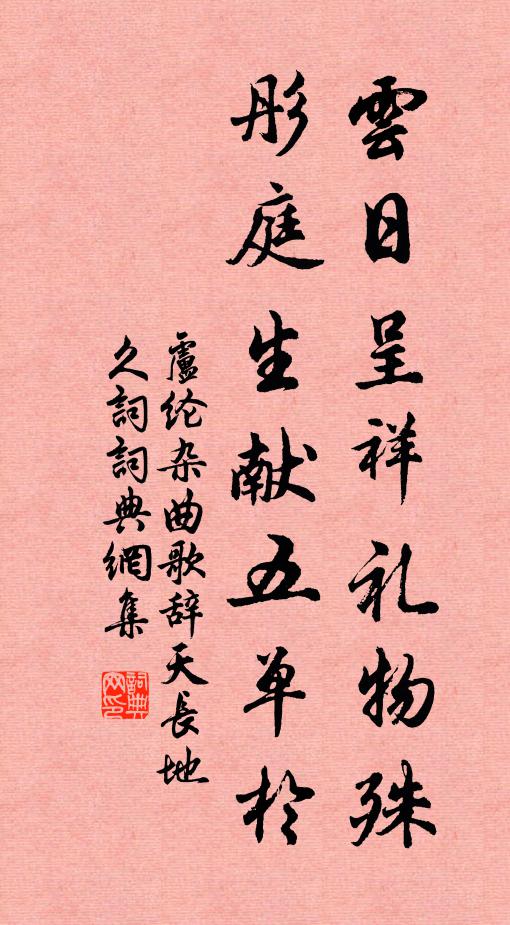 雲日呈祥礼物殊
彤庭生献五单於
盧纶杂曲歌辞天長地
久詞詞典網集
詞典网印